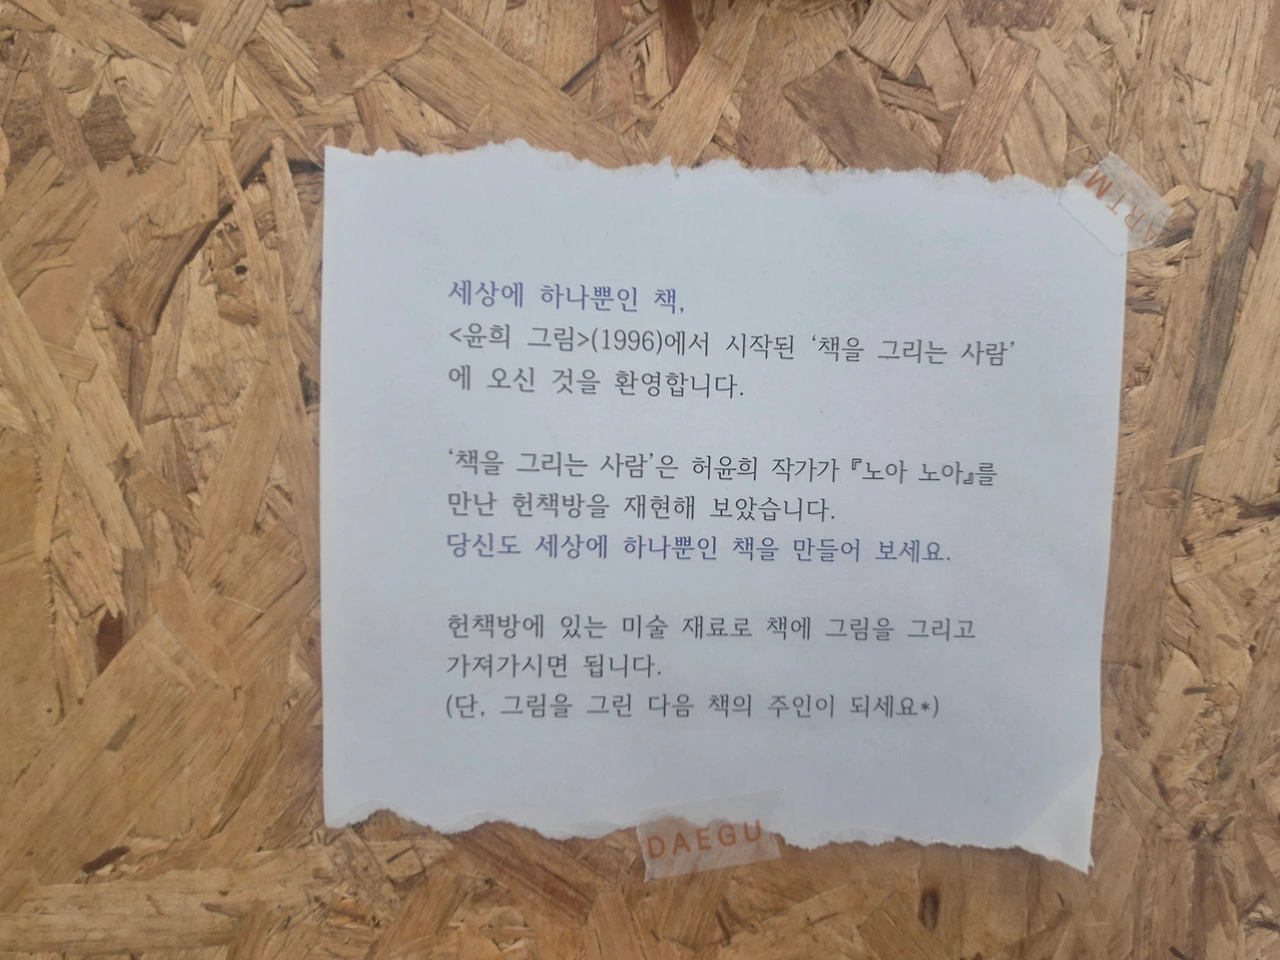 세상에 하나뿐인 책,
<윤희 그림>(1996)에서 시작된 ‘책을 그리는 사람’
에 오신 것을 환영합니다.
‘책을 그리는 사람’은 허윤희 작가가 『노아 노아』를
만난 헌책방을 재현해 보았습니다.
당신도 세상에 하나뿐인 책을 만들어 보세요.
헌책방에 있는 미술 재료로 책에 그림을 그리고
가져가시면 됩니다.
(단, 그림을 그린 다음 책의 주인이 되세요*)
ARTM
DAEGU